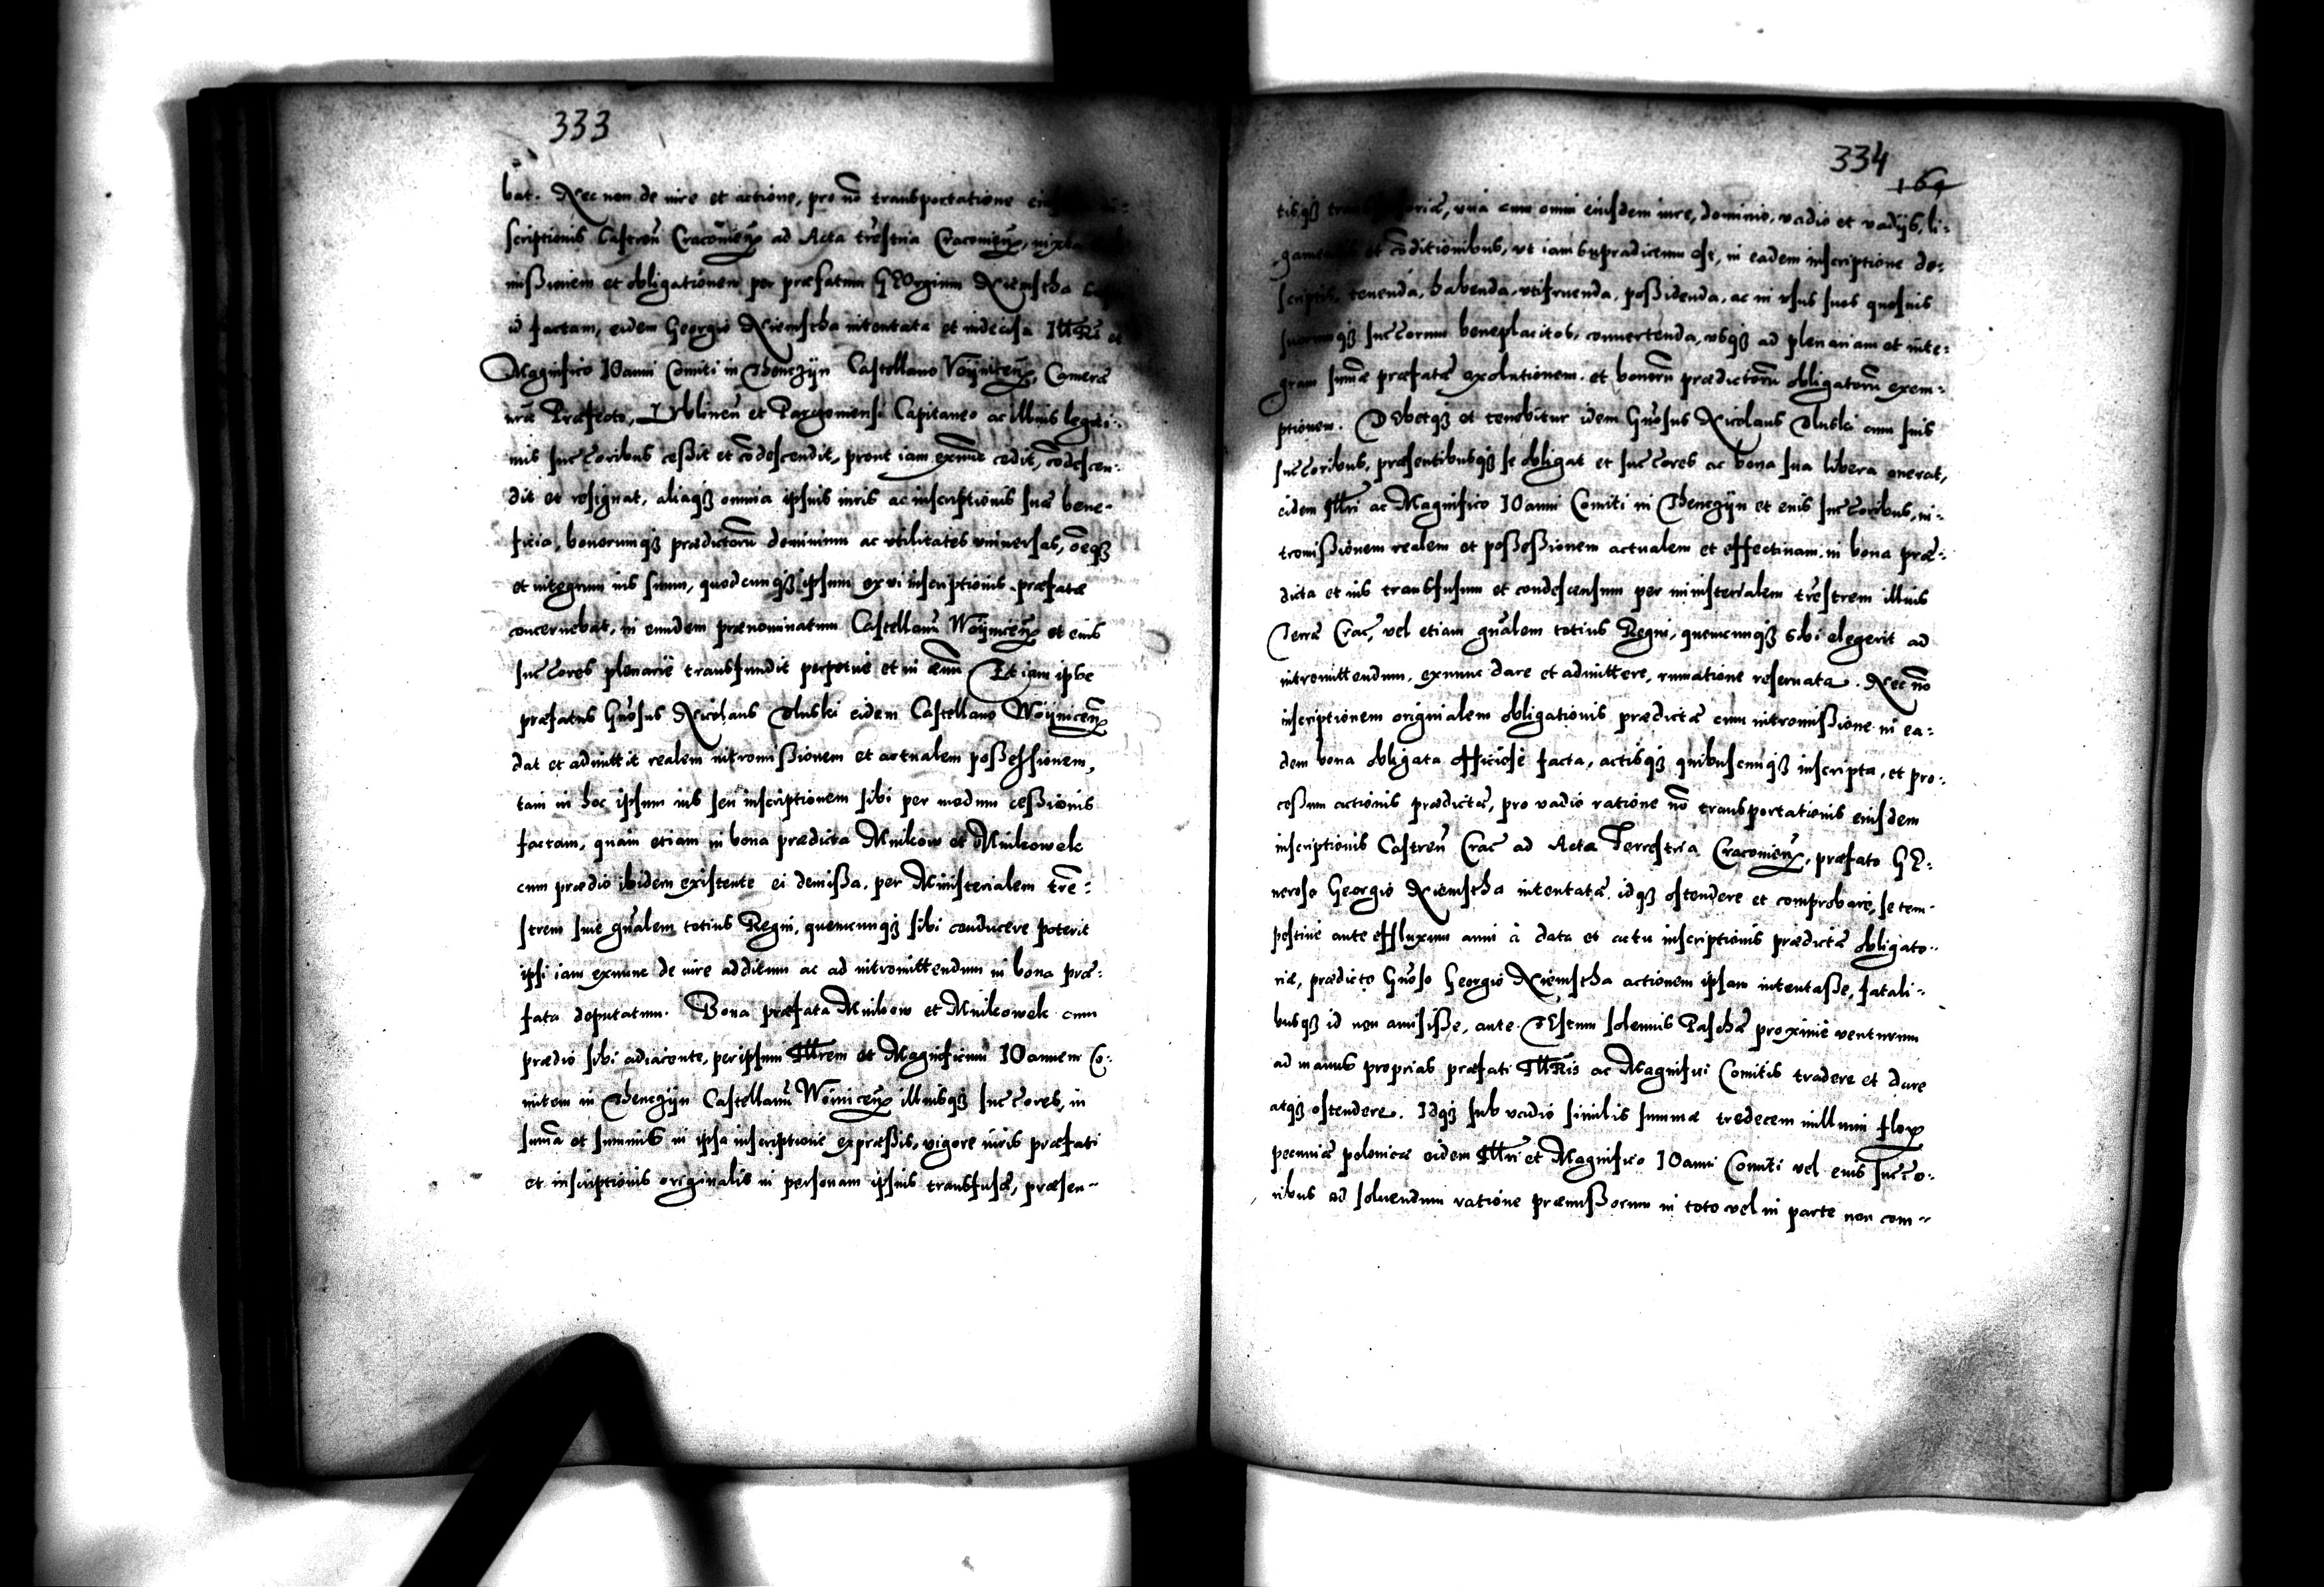 333
bat. Nec non de iure et actione, pro nō transportatione
scriptionis Castreñ Cracouieñ ad Acta trestria Cracouieñ, iuxta
missionem et obligationem per præfatum GEorgium Niemstha
id factam, eidem Georgio Niemstha intentata et indecisa Illri et
Magnifico IOanni Comiti in Thenczÿn Castellano Voÿniceñ, Cameræ
nræ Præfecto, Lvblineñ et Parczouiensi Capitaneo ac illius legiti-
mis succoribus cessit et cōdescendit, prout iam exnūc cedit, cōdescen-
dit et resignat, aliaqȝ omnia ipsius iuris ac inscriptionis suæ bene-
ficia, bonorumqȝ prædictorū dominium ac vtilitates vniuersas, oēqȝ
et integrum ius suum, quodcunqȝ ipsum ex vi inscriptionis præfatæ
concernebat, in eundem prænominatum Castellanū Woÿniceñ et eius
succores plenarie transfundit perpetue et in æuū Et iam ipse
præfatus Gñosus Nicolaus Dluski eidem Castellano Woÿniceñ
dat et admittit realem intromissionem et actualem possessionem,
tam in hoc ipsum ius seu inscriptionem sibi per modum cessionis
factam, quam etiam in bona prædicta Mnikow et Mnikowek
cum prædio ibidem existente ei demissa, per Ministerialem tre-
strem siue gñalem totius Regni, quemcunqȝ sibi conducere poterit
ipsi iam exnunc de iure additum ac ad intromittendum in bona præ-
fata deputatum. Bona præfata Mnikow et Mnikowek cum
prædio sibi adiacente, per ipsum Illrem et Magnificum IOannem Co-
mitem in Thenczÿn Castellanū Woiniceñ illiusqȝ succores, in
sumā et summis in ipsa inscriptione expressis, vigore iuris præfati
et inscriptionis originalis in personam ipsius transfusæ, præsen-
334
164
tisqȝ una cum omni eiusdem iure, dominio, vadio et vadijs, li-
et cōditionibus, vt iam supradictum est, in eadem inscriptione de-
scriptis, tenenda, habenda, vtifruenda, possidenda, ac in vsus suos quosuis
suorumqȝ succorum beneplacitos, conuertenda, vsqȝ ad plenariam et inte-
gram sumæ præfatæ exolutionem et bonorū prædictorū obligatorū exem-
ptionem. DEbetqȝ et tenebitur idem Gñosus Nicolaus Dluski cum suis
succoribus, præsentibusqȝ se obligat et succores ac bona sua libera onerat,
eidem Illri ac Magnifico IOanni Comiti in Thenczÿn et eius succoribus, in-
tromissionem realem et possessionem actualem et effectiuam in bona præ-
dicta et ius transfusum et condescensum per ministerialem trestrem illius
Terræ Crac, vel etiam gñalem totius Regni, quemcunqȝ sibi elegerit ad
intromittendum, exnunc dare et admittere, rumatione reseruata. Nec nō
inscriptionem originalem obligationis prædictæ cum intromissione in ea-
dem bona obligata officiose facta, actisqȝ quibuscunqȝ inscripta, et pro-
cessum actionis prædictæ, pro vadio ratione nō transportationis eiusdem
inscriptionis Castreñ Crac ad Acta Terrestria Cracouieñ, præfato GE-
neroso Georgio Niemstha intentatæ, idqȝ ostendere et comprobare, se tem-
pestiue ante effluxum anni à data et actu inscriptionis prædictæ obligato-
riæ, prædicto Gñoso Georgio Niemstha actionem ipsam intentasse, fatali-
busqȝ id non amisisse, ante FEstum solennis Paschæ proxime venturum
ad manus proprias præfati Illris ac Magnifici Comitis tradere et dare
atqȝ ostendere. Idqȝ sub vadio similis summæ tredecem millium flor
pecuniæ polonicæ eidem Illri et Magnifico IOanni Comiti vel eius succo-
ribus ad soluendum ratione præmissorum in toto vel in parte non com-